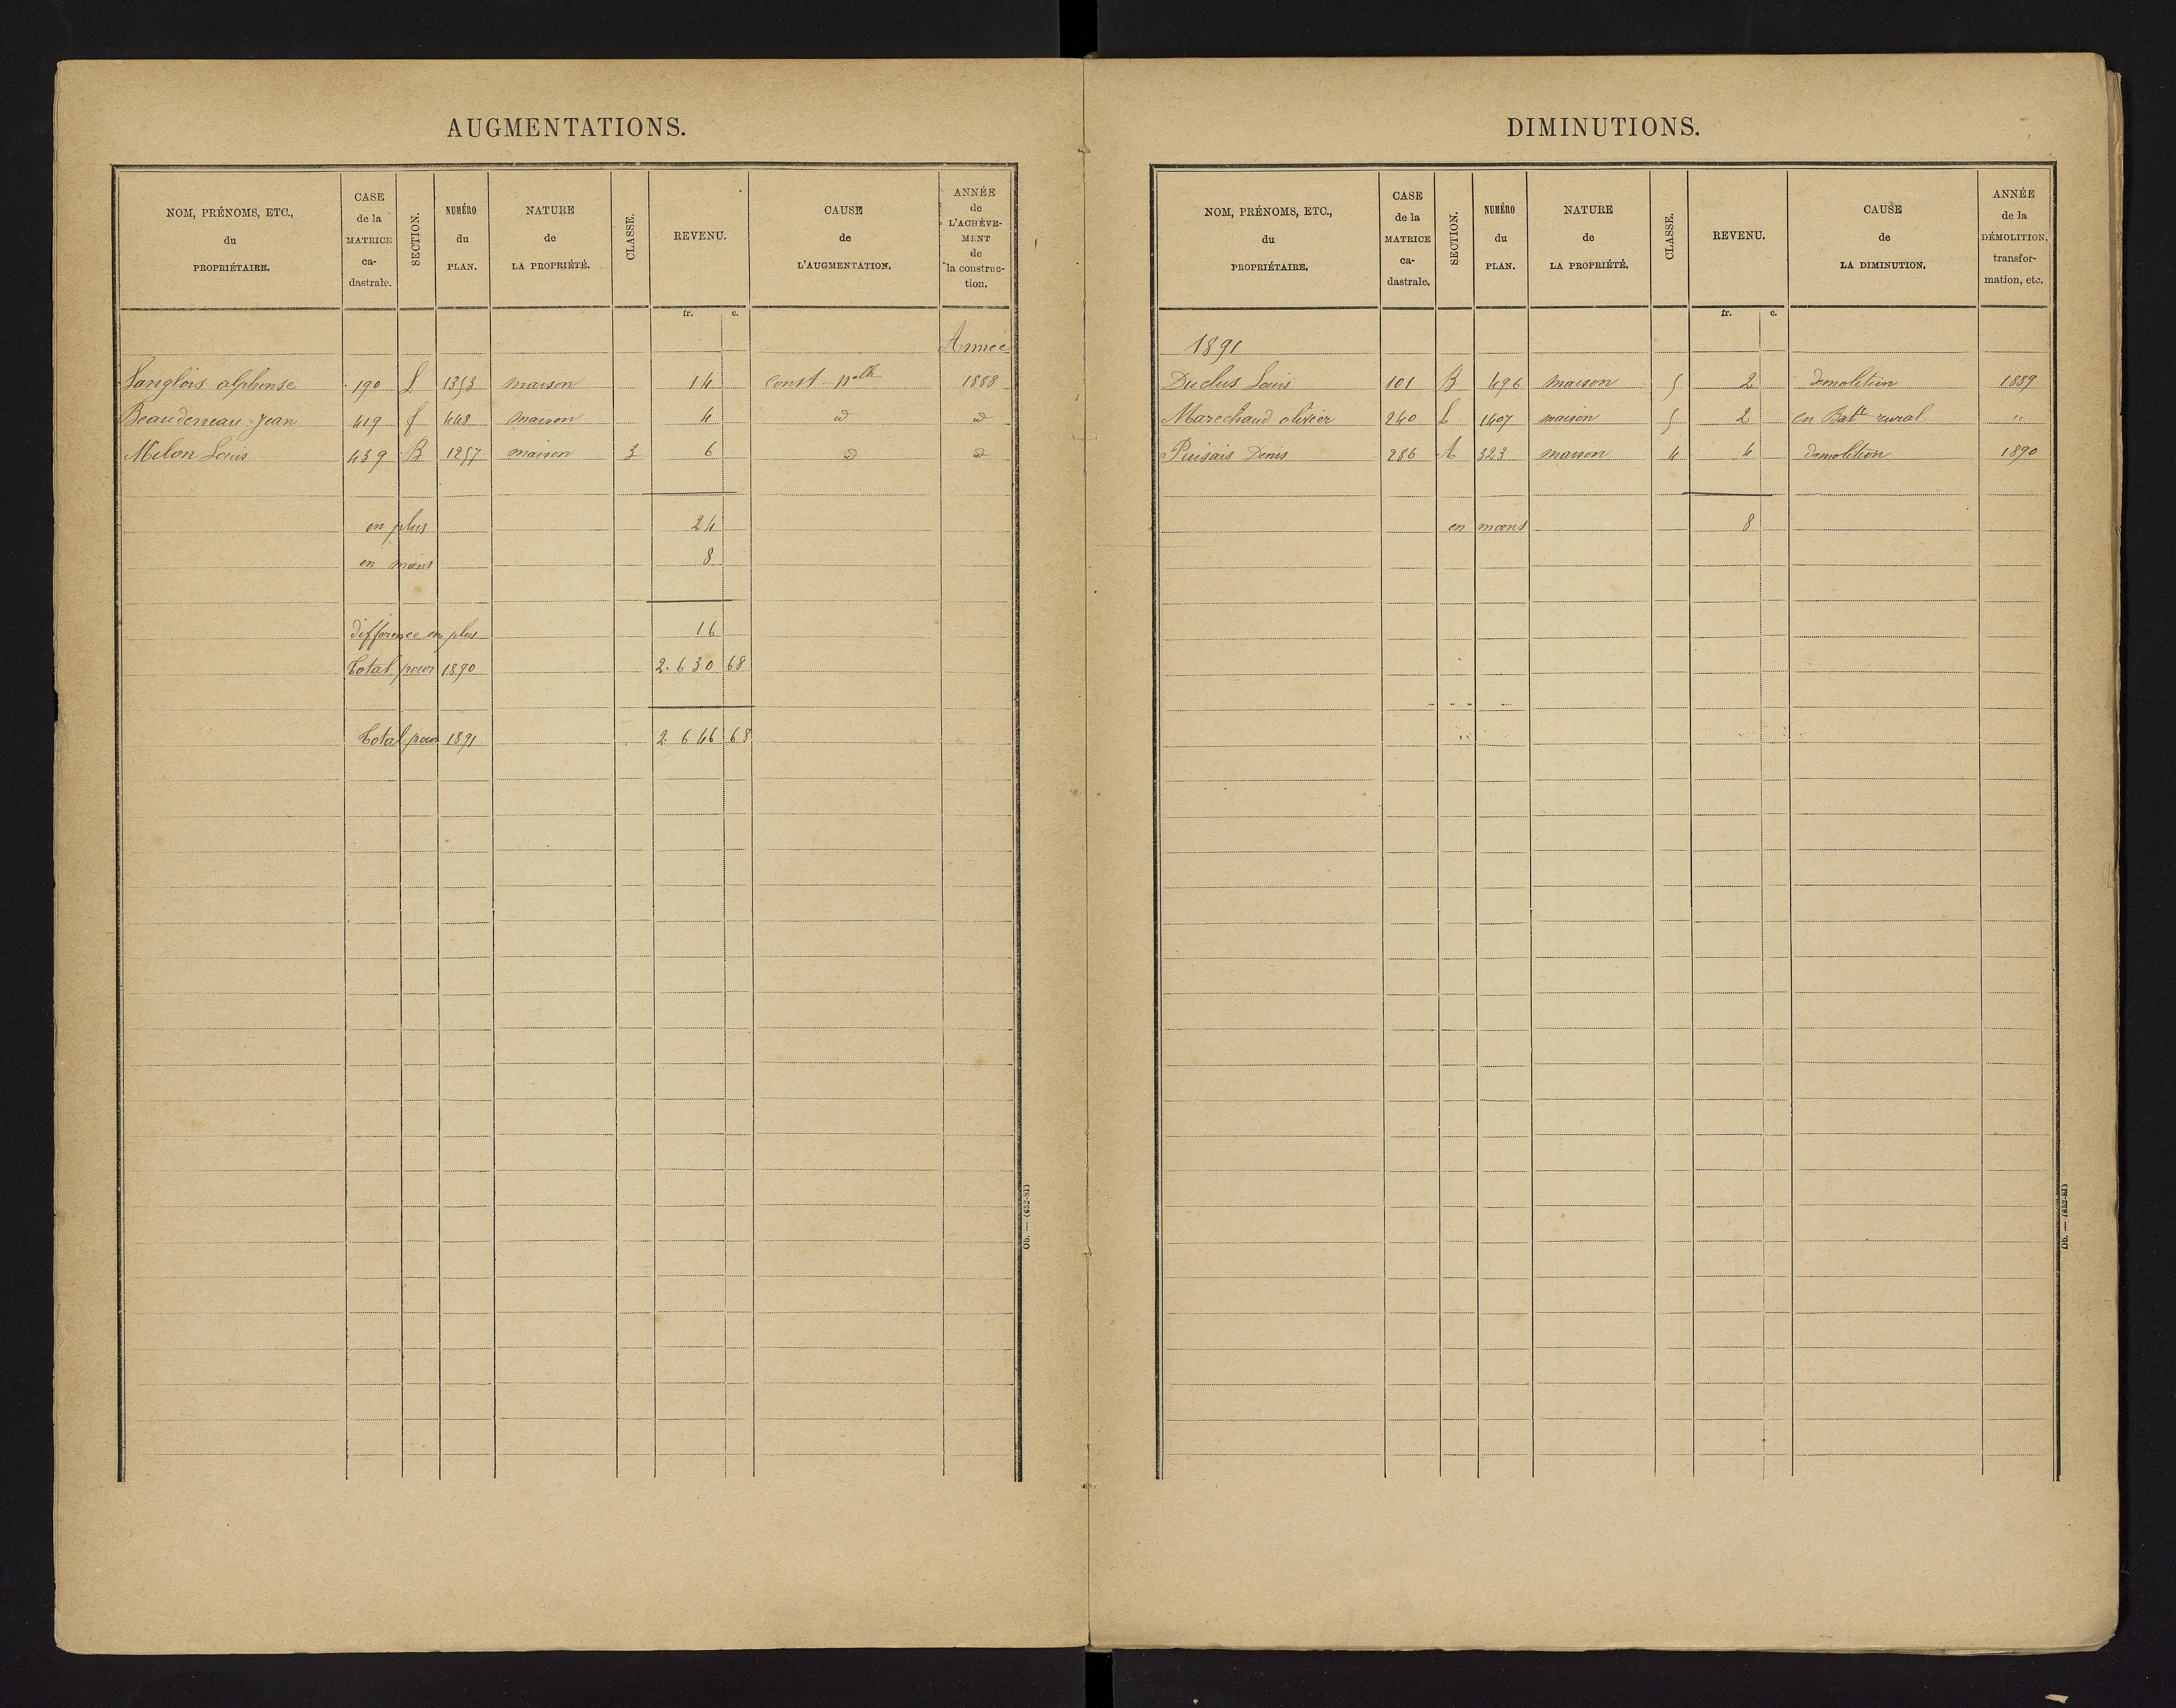 AUGMENTATIONS.
NOM, PRÉNOMS, ETC., du PROPRIÉTAIRE. CASE de la MATRICE ca-dastrale. SECTION. NUMÉRO du PLAN. NATURE de LA PROPRIÉTÉ. CLASSE. REVENU. CAUSE de L'AUGMENTATION. ANNÉE de L'ACHÈVE-MENT de la construc-tion.
fr. c.
Année
Langlois alphonse 190 L 1353 maison 14 Const nelle 1888
Beaudeneau Jean 419 f 448 maison 4 d d
Milon Louis 439 B 1257 maison 3 6 d d
en plus 24
en moins 8
différence en plus 16
Total pour 1890 2.630 68
Total pour 1891 2.646 68
Ob. — (652-81)
DIMINUTIONS.
NOM, PRÉNOMS, ETC., du PROPRIÉTAIRE. CASE de la MATRICE ca-dastrale. SECTION. NUMÉRO du PLAN. NATURE de LA PROPRIÉTÉ. CLASSE. REVENU. CAUSE de LA DIMINUTION. ANNÉE de la DÉMOLITION, transfor-mation, etc.
fr. c.
1891
Duclus Louis 101 B 496 maison 5 2 demolition 1889
Marechaud olivier 240 L 1407 maison 5 2 en Batt rural "
Puisais Denis 286 A 323 maison 4 4 demolition 1890
en moins 8
Ob. — (652-81)